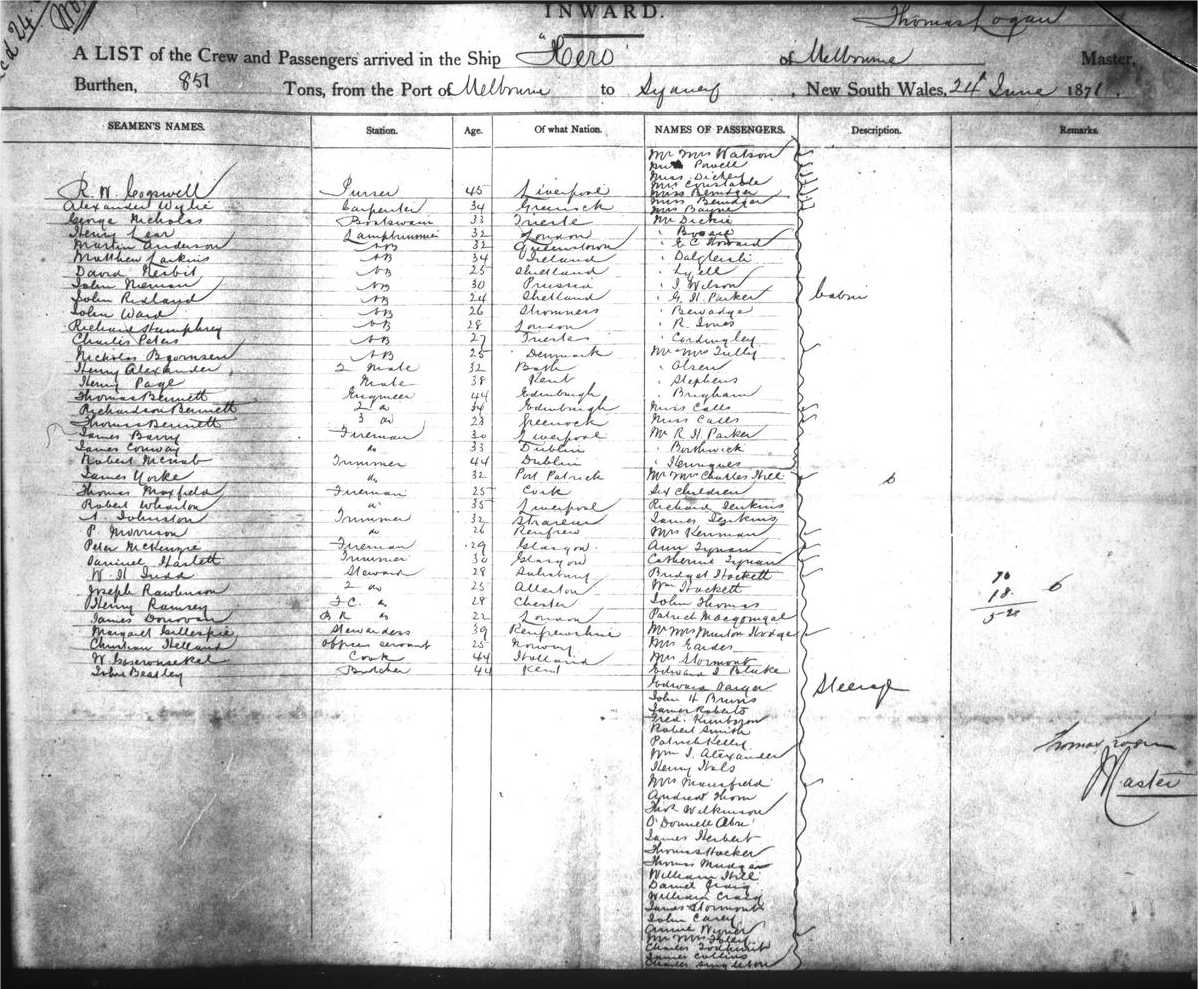 INWARD.
Thomas Logan
A LIST of the Crew and Passengers arrived in the Ship "Hero" of Melbourne Master,
Burthen, 851 Tons, from the Port of Melbourne to Sydney, New South Wales, 24th June 1871.
SEAMEN'S NAMES. Station. Age. Of what Nation. NAMES OF PASSENGERS. Description. Remarks.
Mr Mrs Watson
Powell
Miss Dickey
Mrs Constable
R. W. Cogswell Purser 45 Liverpool
Alexander Wylie Carpenter 34 Greenock
Mrs Bayne
George Nicholas Boatswain 33 Trieste Mr Dickie
Henry Lear Lamptrimmer 32 London
Martin Anderson AB 32 Queenstown " E C Howard
Matthew Larkins AB 34 Ireland " Dalgleish
David Nesbit AB 25 Shetland " Lyell
John Nieman AB 30 Prussia " J Wilson
John Ridland AB 24 Shetland " G. H. Parker Cabin
John Ward AB 26 Stromness
Richard Humphrey AB 28 London " R. Jones
Charles Peters AB 27 Trieste " Cordingley
Nicholas Bjornsen AB 25 Denmark Mr Mrs Tully
Henry Alexander 2 Mate 32 Bath " Olsen
Henry Page Mate 38 Kent " Stephens
Thomas Bennett Engineer 44 Edinburgh " Brigham
Richardson Bennett 2 do 34 Edinburgh Miss Calls
Thomas Bennett 3 do 23 Greenock Miss Calls
James Barry Fireman 30 Liverpool Mr R. H. Parker
James Conway do 33 Dublin " Borthwick
Robert McNab Trimmer 44 Dublin " Henriques
James Yorke do 32 Port Patrick Mr Mrs Charles Hill 6
Thomas Maxfield Fireman 25 Cork Six Children
Robert Wharton do 35 Liverpool Richard Jenkins
A. Johnston Trimmer 32 Stranraer James Jenkins
P. Morrison do 26 Renfrew Mrs Kenman
Peter McKenzie Fireman 29 Glasgow Ann Tynan
Daniel Haslett Trimmer 30 Glasgow Catherine Tynan
W. H. Judd Steward 28 Salisbury Bridget Hackett
Joseph Rawlinson 2 do 25 Allerton Wm Hackett 70 6
Henry Ramsey F.C. do 28 Chester John Thomas 18
James Donovan do 22 London Patrick Macgonigal
Margaret Gillespie Stewardess 39 Renfrewshire Mr Mrs Murton Hodge
Christian Helland officers servant 25 Norway Mrs Eardes
W. Cook 44 Holland Mrs Stormont
John Beasley Butcher 44 Kent Edward J Blake
Edward Steerage
John H Bruns
James Roberts
Fred.
Robert Smith
Patrick Kelly
Wm J. Alexander Thomas Logan
Henry Hals
Mrs Mansfield Master
Andrew Thom
Thos Wilkinson
O'Donnell
James Herbert
Thomas Hocker
Thomas Mudgar
William Hill
Daniel Craig
William Craig
James Stormont
John Carey
Annie Wyner
Mr Mrs Foley
Charles
James Collins
Charles Singleton